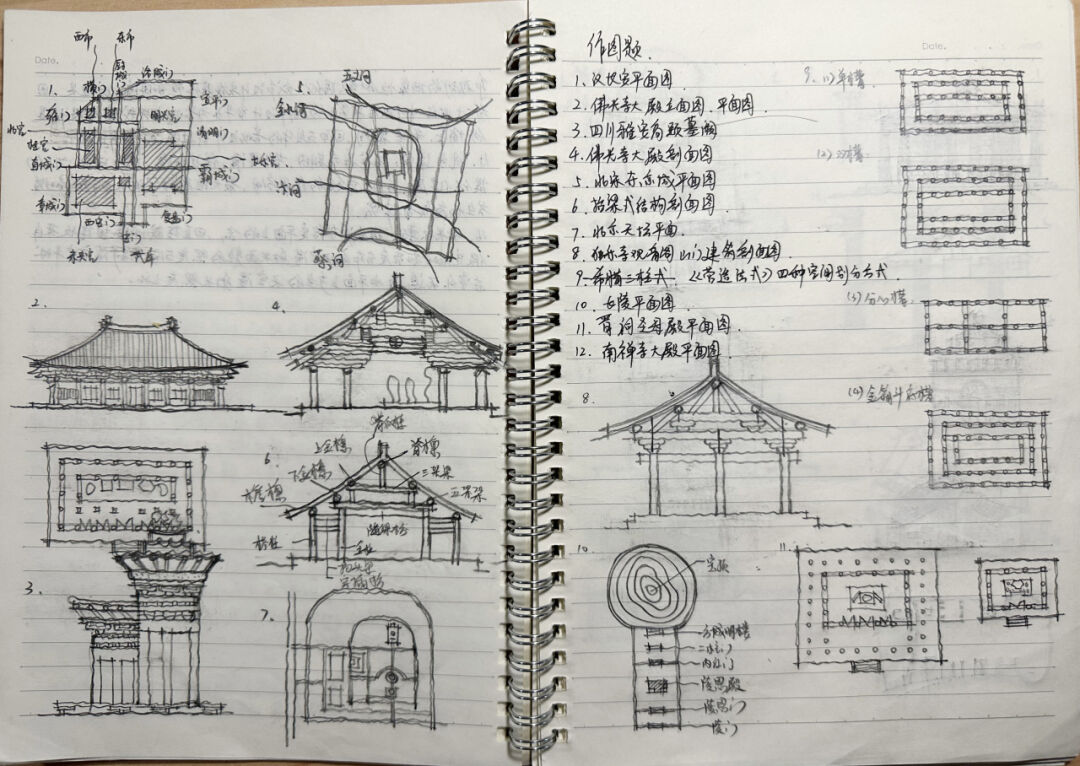 Date.
西市
东市
1.
横门
厨城门
洛城门
宣平门
明光宫
雍门
清明门
桂宫
直城门
长乐宫
霸城门
章城门
西安门
安门
覆盎门
未央宫
武库
5.
五丈河
金水河
汴河
蔡河
2.
4.
6.
脊瓜柱
上金檩
脊檩
下金檩
三架梁
五架梁
檐柱
金柱
3.
7.
作图题.
Date.
1. 汉长安平面图
2. 佛光寺大殿立面图、平面图
3. 四川雅安高颐墓阙
4. 佛光寺大殿剖面图
5. 北宋东京城平面图
6. 抬梁式结构剖面图
7. 北京天坛平面.
8. 独乐寺观音阁山门建筑剖面图
9. 希腊三柱式.《营造法式》四种空间划分方式.
10. 长陵平面图.
11. 晋祠圣母殿平面图.
12. 南禅寺大殿平面图.
9. (1) 单槽
(2) 双槽
(3) 分心槽
(4) 金箱斗底槽
8.
10
宝顶
方城明楼
二柱门
内红门
祾恩殿
祾恩门
陵门
11.
12.